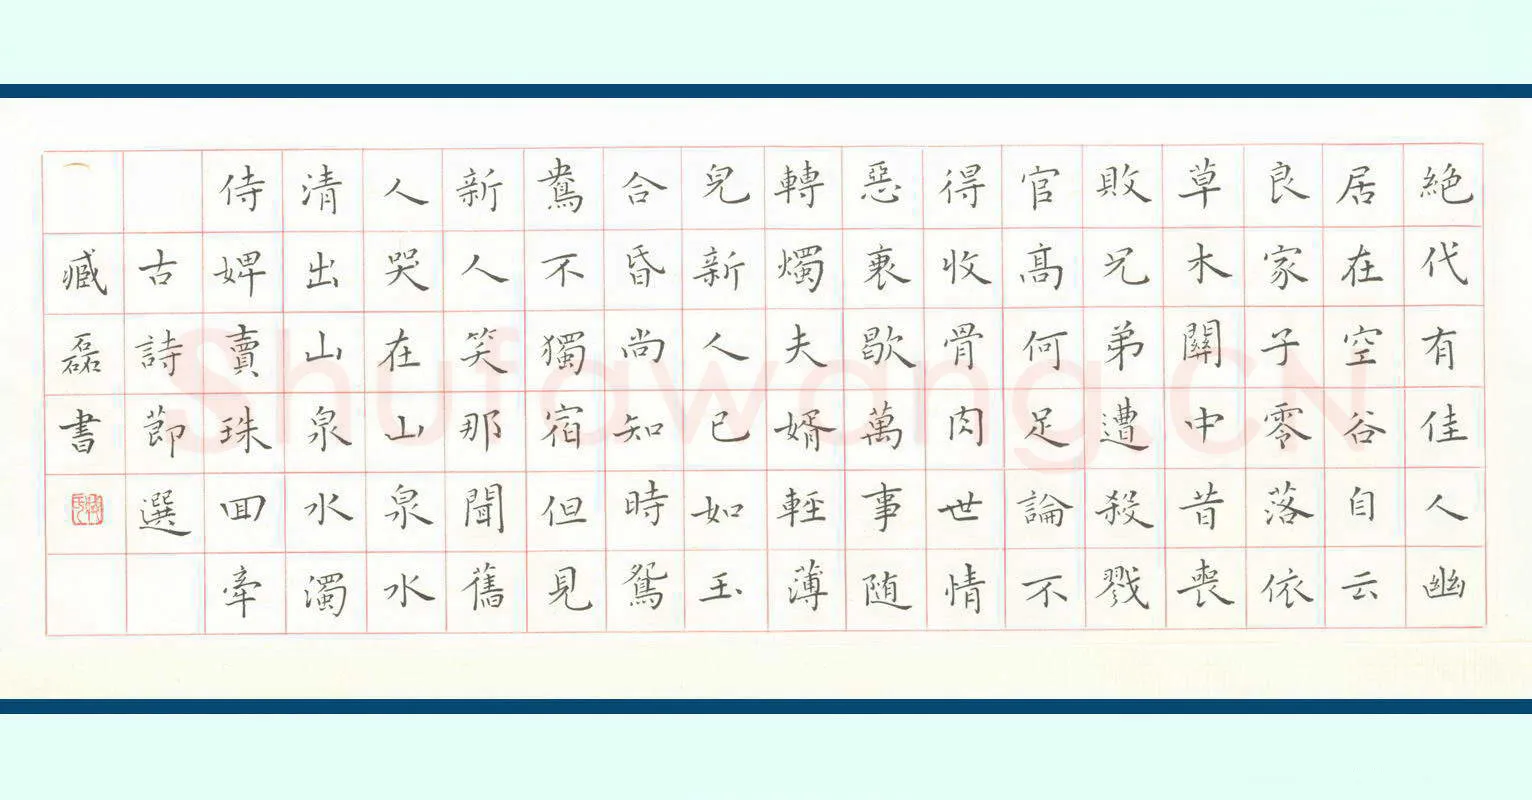 絕代有佳人幽
居在空谷自云
良家子零落依
草木關中昔喪
敗兄弟遭殺戮
官高何足論不
得收骨肉世情
惡衰歇萬事隨
轉燭夫婿輕薄
兒新人已如玉
合昏尚知時鴛
鴦不獨宿但見
新人笑那聞舊
人哭在山泉水
清出山泉水濁
侍婢賣珠回牽
古詩節選
臧磊書
Shufawang.CN